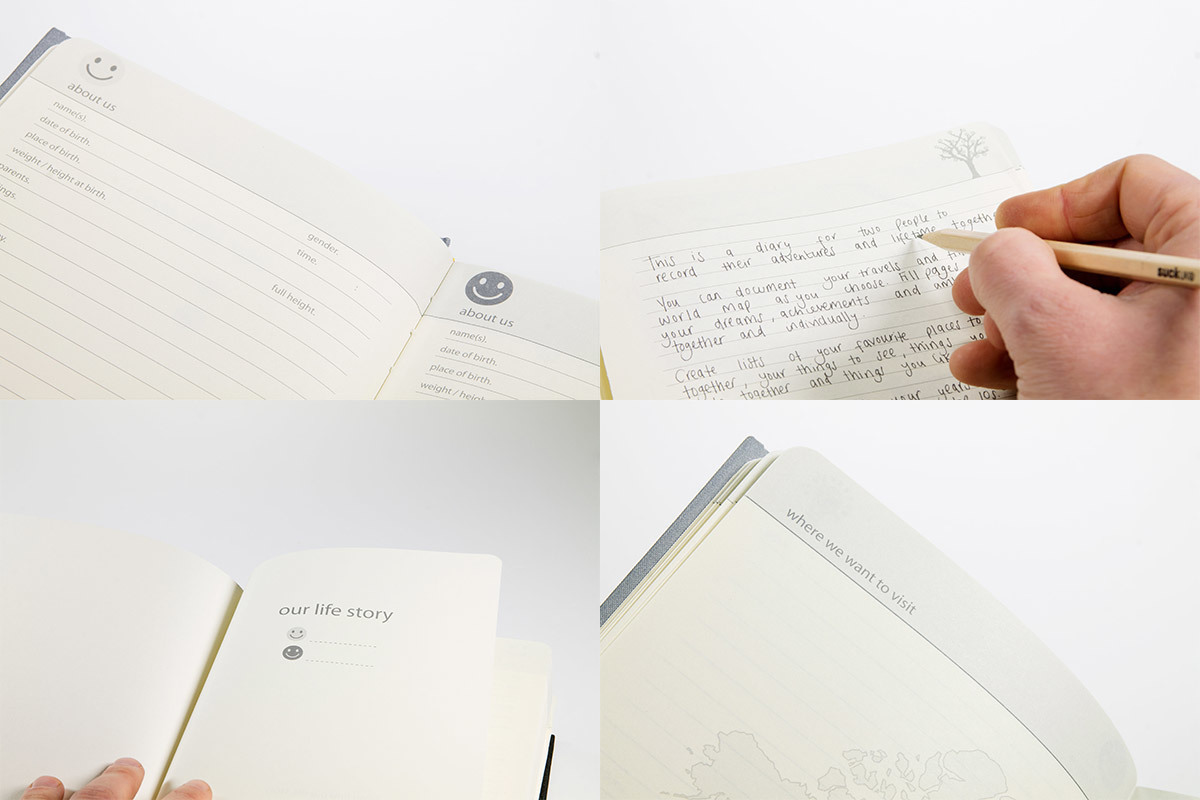 about us
name(s).
date of birth.
place of birth.
weight / height at birth.
parents.
gender.
time.
full height.
about us
name(s).
date of birth.
place of birth.
This is a diary for two people to
record their adventures and lifetime
You can document your travels and
world map as you choose. Fill pages
your dreams, achievements and
together and individually.
Create lists of your favourite places to
together, your things to see, things
together and things you
your years
our life story
where we want to visit